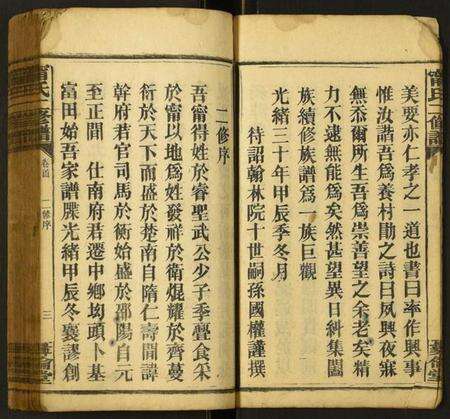 美要亦仁孝之一道也書曰率作興事
惟汝諧吾爲養村勖之詩曰夙興夜寐
無忝爾所生吾爲崇善望之余老矣精
力不逮無能爲矣然甚望異日糾集闔
族續修族譜爲一族巨觀
光緒三十年甲辰季冬月
待詔翰林院十世嗣孫國權謹撰
甯氏二修譜
彝倫堂
二修序
吾甯得姓於睿聖武公少子季亹食采
於甯以地爲姓發祥於衛焜耀於齊蔓
衍於天下而盛於楚南自隋仁壽間諱
幹府君官司馬於術始盛於邵陽自元
至正間 仕南府君遷中鄉均頭卜基
富田始吾家譜牒光緒甲辰冬襄謬創
甯氏二修譜
卷首 二修序
三
彝倫堂